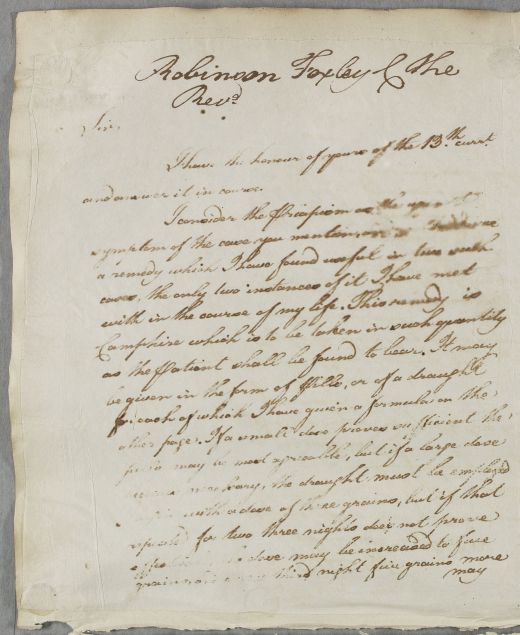 Robinson Foxley & the
Revd
Sir,
I have the honour of yours of the 13th. currt.
and answer it in course.
I consider the Priapism as the
symptom of the case you mention
a remedy which I have found useful in two such
cases, the only two instances of it I have met
with in the course of my life. This remedy is
Camphire which is to be taken in such quantity
as the Patient shall be found to bear. It may
be given in the form of Pills, or of a draught
for each of which I have given a formula on the
other page. If a small dose proves sufficient the
may be most agreeable, but if a large dose
necessary, the draught must be employed
with a dose of three grains, but if that
for two three nights does not prove
dose may be increased to five
grains third night five grains more
may